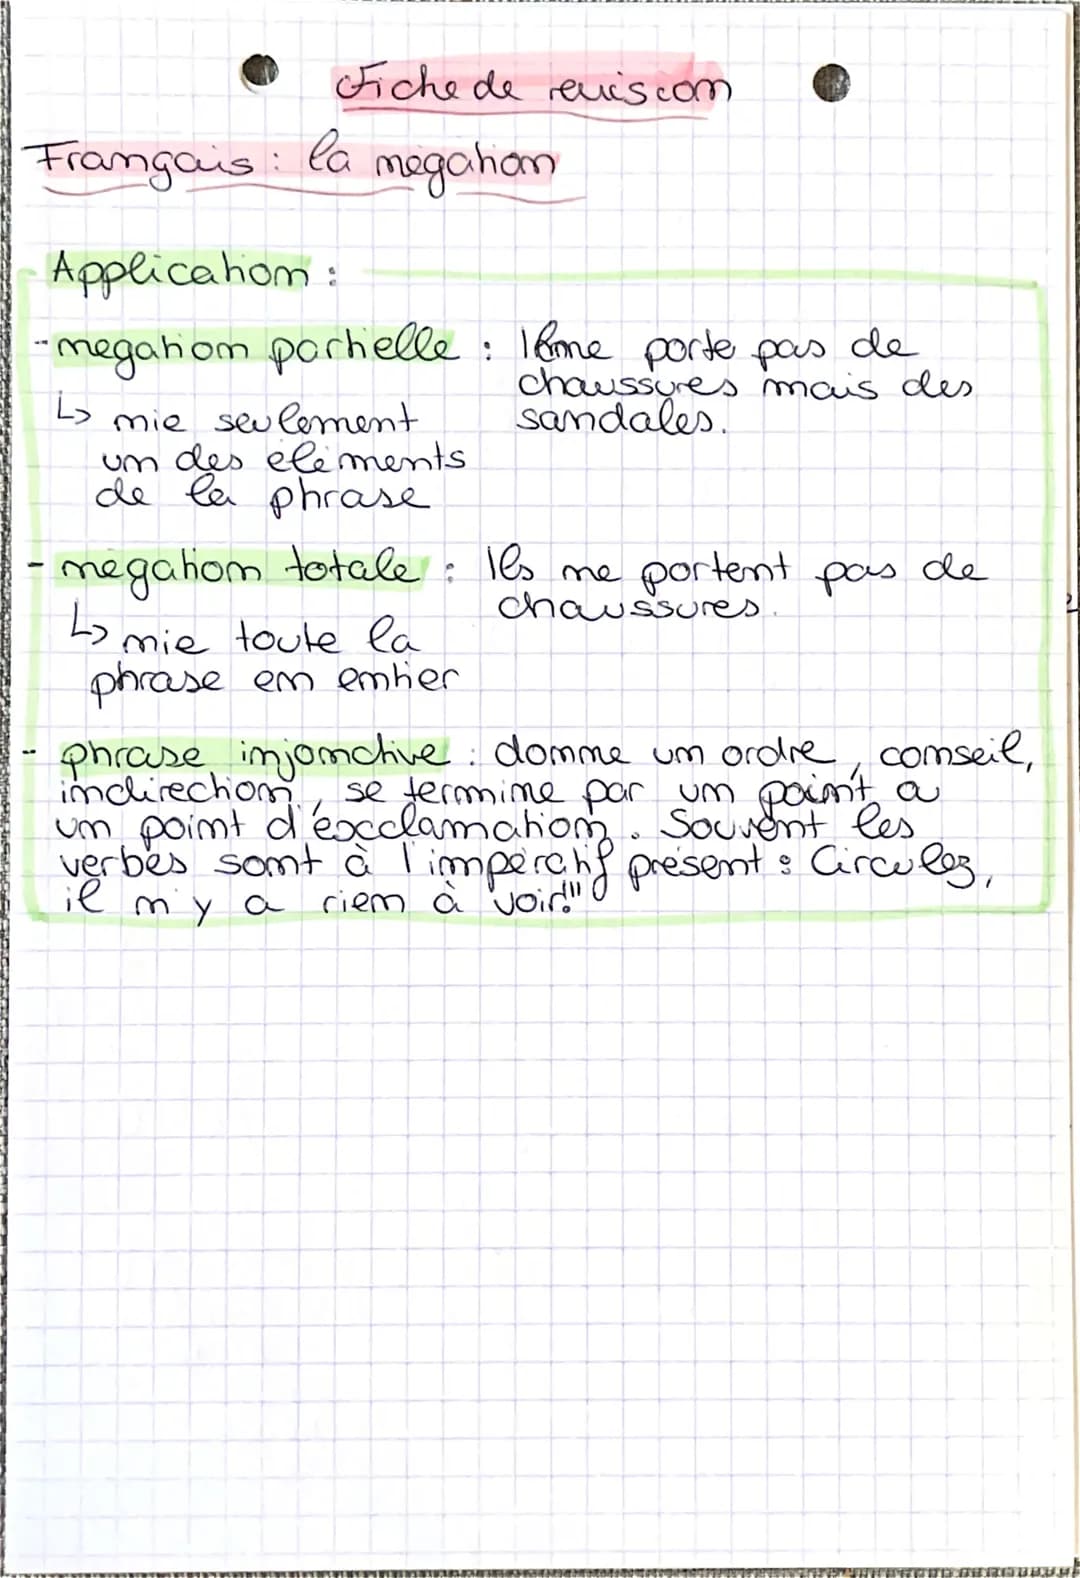 Fiche de revision
Français : la négation
Application :
- négation partielle : Il ne porte pas de
chaussures mais des
sandales.
↳ nie seulement
un des éléments
de la phrase
- négation totale : Ils ne portent pas de
chaussures.
↳ nie toute la
phrase en entier
- phrase injonctive : donne un ordre, conseil,
indirection, se termine par un point a
un point d'éxcclamation. Souvent les
verbes sont à l'impératif présent : Circulez,
il n y a rien à voir!"